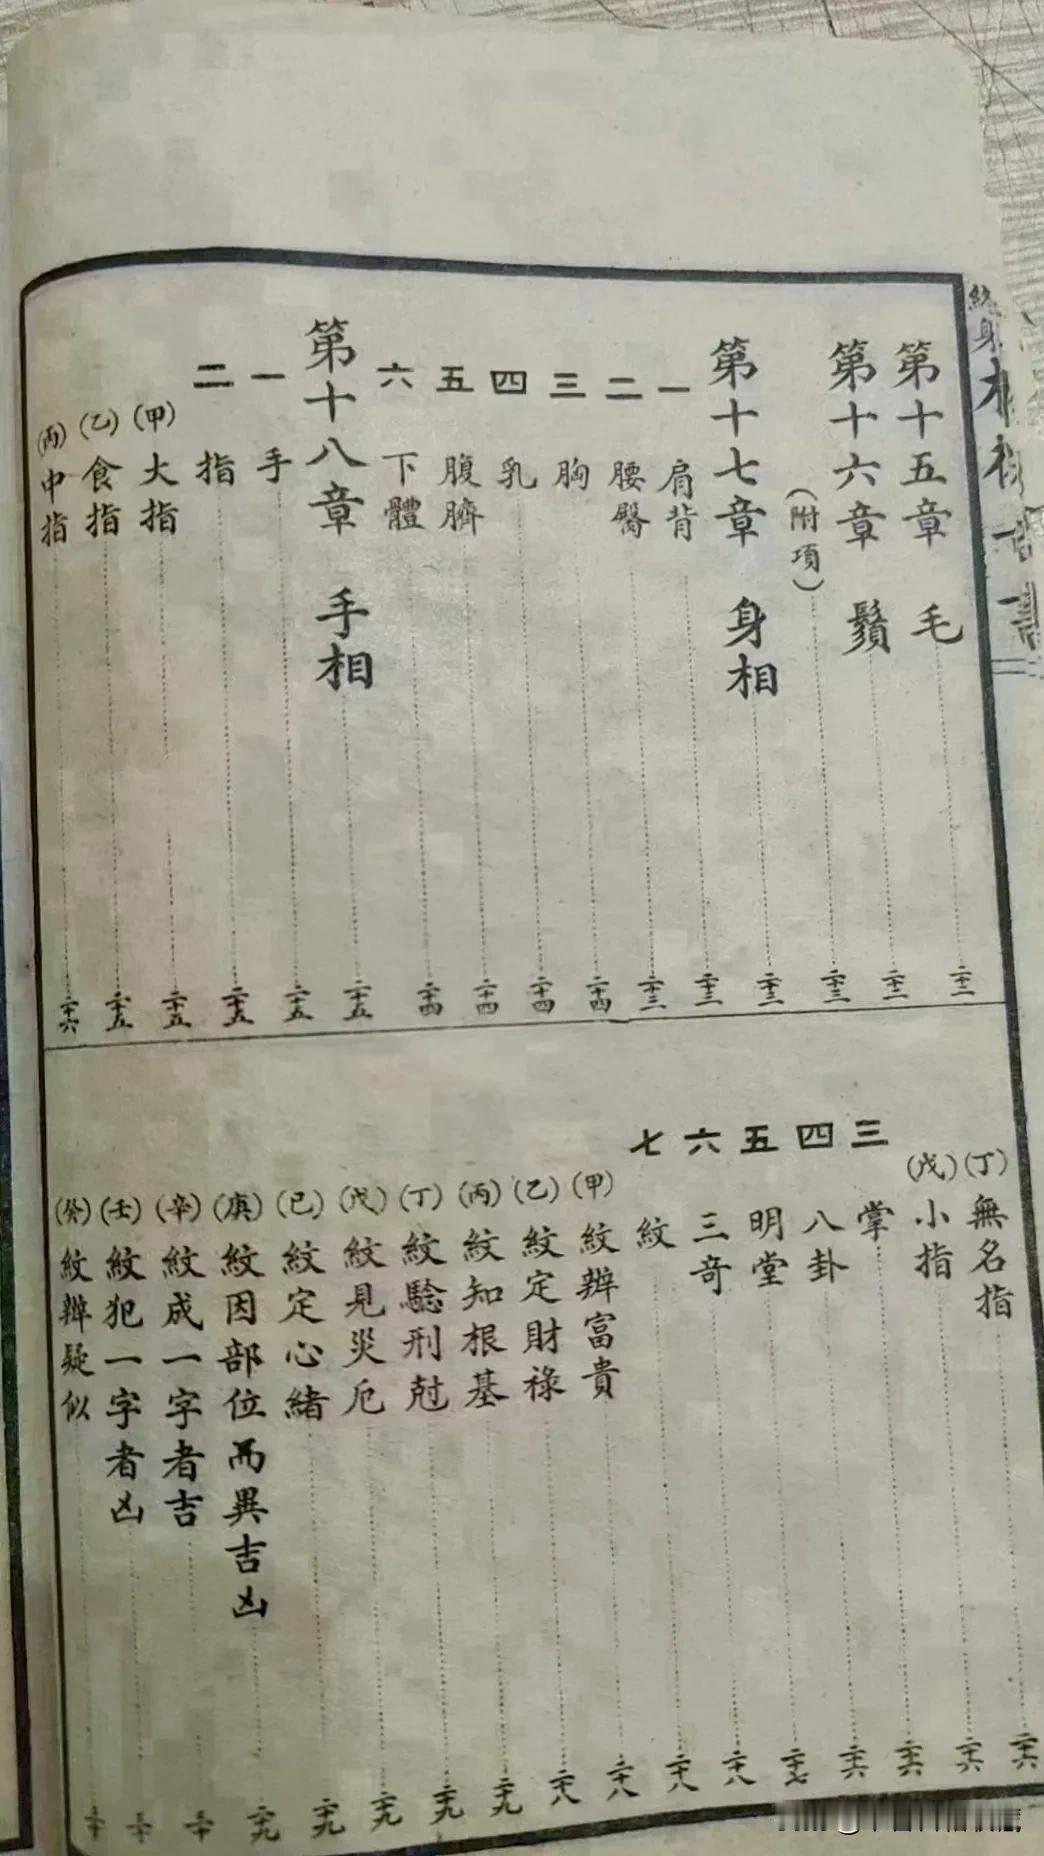 第十五章 毛 二十二
第十六章 鬚 二十二
(附項) 二十三
第十七章 身相 二十三
一 肩背 二十三
二 腰臀 二十三
三 胸 二十四
四 乳 二十四
五 腹臍 二十四
六 下體 二十四
第十八章 手相 二十五
一 手 二十五
二 指 二十五
(甲) 大指 二十五
(乙) 食指 二十五
(丙) 中指 二十六
(丁) 無名指 二十六
(戊) 小指 二十六
三 掌 二十六
四 八卦 二十六
五 明堂 二十七
六 三奇 二十八
七 紋 二十八
(甲) 紋辨富貴 二十八
(乙) 紋定財祿 二十八
(丙) 紋知根基 二十九
(丁) 紋驗刑尅 二十九
(戊) 紋見災厄 二十九
(己) 紋定心緒 二十九
(庚) 紋因部位而異吉凶 二十九
(辛) 紋成一字者吉 三十
(壬) 紋犯一字者凶 三十
(癸) 紋辨疑似 三十